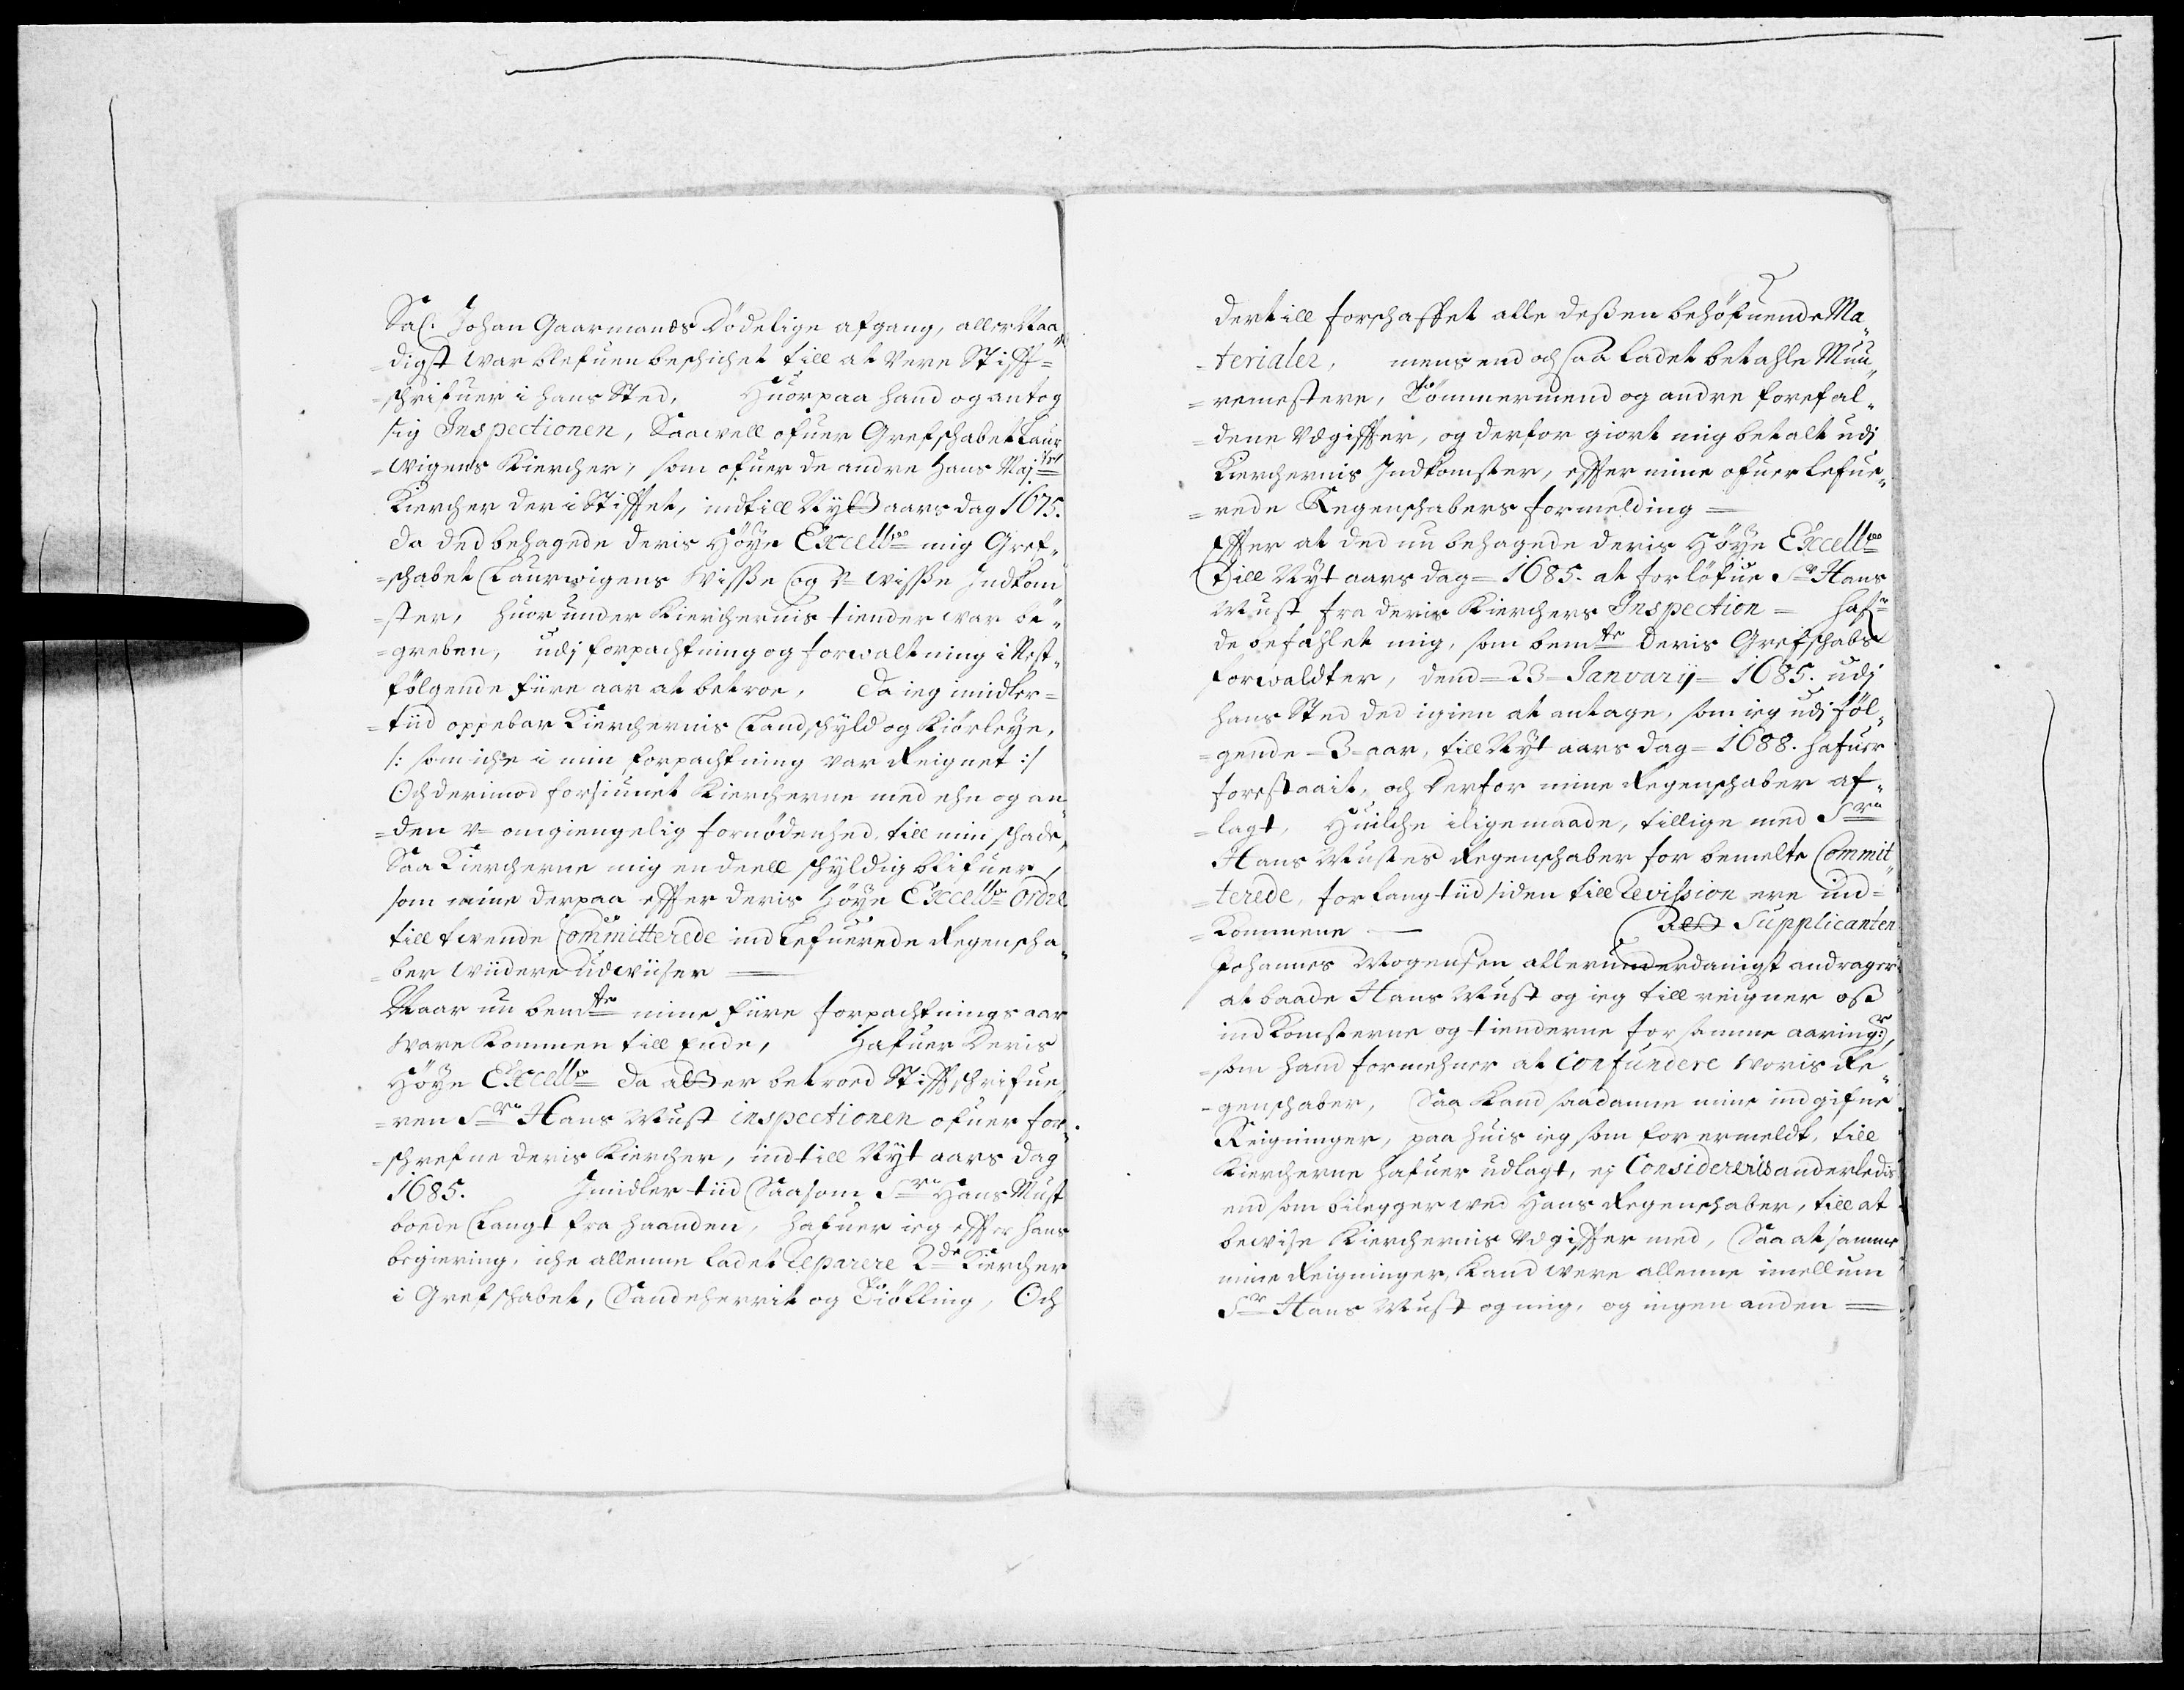 Sal: Johan Gaarmands Dödelige afgang, aller Naa„
=digst war blefuen beschichet till at Vere Stifft=
=schrifuer i hans Sted, Huorpaa hand og antog
sig Inspectionen, Saawell ofuer Grefschabet Laur
=wigens Kiercher, som ofuer de andre Hans Maj:ts
Kiercher der i Stifftet, indtill Nyt aars dag 1675.
da ded behagede deris Höye Excell: mig Gref„
=schabet Laurwigens Wisse og U=wisse Indkom
=ster, huor under Kierchernis tiender war be„
=greben, udj forpachtning og forwaltning i Nest„
følgende fiire aar at betroe, da ieg imidler=
=tiid oppebar Kierchernis Landschyld og Kiörleye,
/: som iche i min forpachtning var Reignet :/
Och derimod forsiunet Kiercherne med ehn og an„
=den U=omgiengelig fornödenhed, till min schade,
Saa Kiercherne mig en deell schyldig blifuer,
som mine derpaa effter deris Höye Excell: Ordre
till twende Committerede ind Lefuerede Regenscha„
=ber wiidere udwiiser =
Naar nu bemte mine fiire forpachtnings aar
ware kommen till Ende, Hafuer Deris
Höye Excell: da alt er betroed Stifftschrifue„
=ren Sr Hans Must inspectionen ofuer for„
=schrefne deris Kiercher, indtill Nyt aars dag
1685. Imidler tiid Saasom Sr Hans Must
boede Langt fra haanden, hafuer ieg effter hans
begiering, iche allenne ladet Reparere 2de Kiercher
i Grefschabet, Sandeherrit og Tiölling, Och
dertill forschaffet alle dessen behöfuende Ma„
=terialer, mens end och saa ladet betahle Muu„
=remestere, Tömmermend og andre forefal„
=dene Udgiffter, og derfor giort mig betalt udj
Kierchernis Indkomster, effter mine ofuer lefue„
=rede Regenschabers formelding =
Effter at ded nu behagede deris Höye Excell:
Till Nyt aars dag = 1685. at forlöfue Sr Hans
Must fra deris Kierchers Inspection = haf„
de befahlet mig, som bemte Deris Grefschabs
forwaldter, dend = 23 = January = 1685. udj
hans Sted ded igien at antage, som ieg udj föl„
=gende = 3 = aar, till Nyt aars dag = 1688. hafuer
forestaait, och derfor mine Regenschaber af„
=lagt, Huilche iligemaade, tillige med Sr
Hans Mustes Regenschaber for bemelte Commit„
=terede, for lang tiid siden till Revission ere ind=
=kommene — Supplicanten
Johannes Mogensen allerunderdanigst andrager
at baade Hans Must og ieg till reigner oss
indkomsterne og tienderne for samme aaringer,
=som hand formehner at Confundere woris Re„
=genschaber, Saa kand saadanne mine indgifne
Reigninger, paa huis ieg som for ermeldt, till
Kiercherne hafuer udlagt, ej Considereris anderledis
end som bilegger wed Hans Regenschaber, till at
bewise Kierchernis Udgiffter med, Saa at samme
mine Reigninger, kand were allenne imellum
Sr Hans Must og mig, og ingen anden =